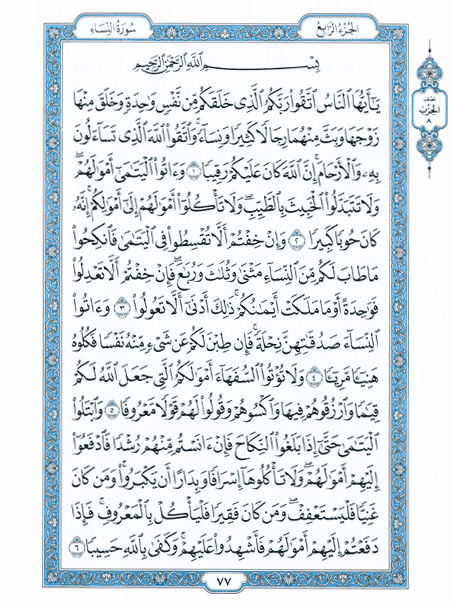 سُورَةُ النِّسَاءِ
الجُزْءُ الرَّابِعُ
نصف
الحزب
٨
بِسْمِ اللَّهِ الرَّحْمَٰنِ الرَّحِيمِ
يَٰٓأَيُّهَا النَّاسُ اتَّقُوا۟ رَبَّكُمُ الَّذِى خَلَقَكُم مِّن نَّفْسٍ وَٰحِدَةٍ وَخَلَقَ مِنْهَا
زَوْجَهَا وَبَثَّ مِنْهُمَا رِجَالًا كَثِيرًا وَنِسَآءً ۚ وَاتَّقُوا۟ اللَّهَ الَّذِى تَسَآءَلُونَ
بِهِۦ وَالْأَرْحَامَ ۚ إِنَّ اللَّهَ كَانَ عَلَيْكُمْ رَقِيبًا ١ وَءَاتُوا۟ الْيَتَٰمَىٰٓ أَمْوَٰلَهُمْ ۖ
وَلَا تَتَبَدَّلُوا۟ الْخَبِيثَ بِالطَّيِّبِ ۖ وَلَا تَأْكُلُوٓا۟ أَمْوَٰلَهُمْ إِلَىٰٓ أَمْوَٰلِكُمْ ۚ إِنَّهُۥ
كَانَ حُوبًا كَبِيرًا ٢ وَإِنْ خِفْتُمْ أَلَّا تُقْسِطُوا۟ فِى الْيَتَٰمَىٰ فَانكِحُوا۟
مَا طَابَ لَكُم مِّنَ النِّسَآءِ مَثْنَىٰ وَثُلَٰثَ وَرُبَٰعَ ۖ فَإِنْ خِفْتُمْ أَلَّا تَعْدِلُوا۟
فَوَٰحِدَةً أَوْ مَا مَلَكَتْ أَيْمَٰنُكُمْ ۚ ذَٰلِكَ أَدْنَىٰٓ أَلَّا تَعُولُوا۟ ٣ وَءَاتُوا۟
النِّسَآءَ صَدُقَٰتِهِنَّ نِحْلَةً ۚ فَإِن طِبْنَ لَكُمْ عَن شَىْءٍ مِّنْهُ نَفْسًا فَكُلُوهُ
هَنِيٓـًٔا مَّرِيٓـًٔا ٤ وَلَا تُؤْتُوا۟ السُّفَهَآءَ أَمْوَٰلَكُمُ الَّتِى جَعَلَ اللَّهُ لَكُمْ
قِيَٰمًا وَارْزُقُوهُمْ فِيهَا وَاكْسُوهُمْ وَقُولُوا۟ لَهُمْ قَوْلًا مَّعْرُوفًا ٥ وَابْتَلُوا۟
الْيَتَٰمَىٰ حَتَّىٰٓ إِذَا بَلَغُوا۟ النِّكَاحَ فَإِنْ ءَانَسْتُم مِّنْهُمْ رُشْدًا فَادْفَعُوٓا۟
إِلَيْهِمْ أَمْوَٰلَهُمْ ۖ وَلَا تَأْكُلُوهَآ إِسْرَافًا وَبِدَارًا أَن يَكْبَرُوا۟ ۚ وَمَن كَانَ
غَنِيًّا فَلْيَسْتَعْفِفْ ۖ وَمَن كَانَ فَقِيرًا فَلْيَأْكُلْ بِالْمَعْرُوفِ ۚ فَإِذَا
دَفَعْتُمْ إِلَيْهِمْ أَمْوَٰلَهُمْ فَأَشْهِدُوا۟ عَلَيْهِمْ ۚ وَكَفَىٰ بِاللَّهِ حَسِيبًا ٦
٧٧